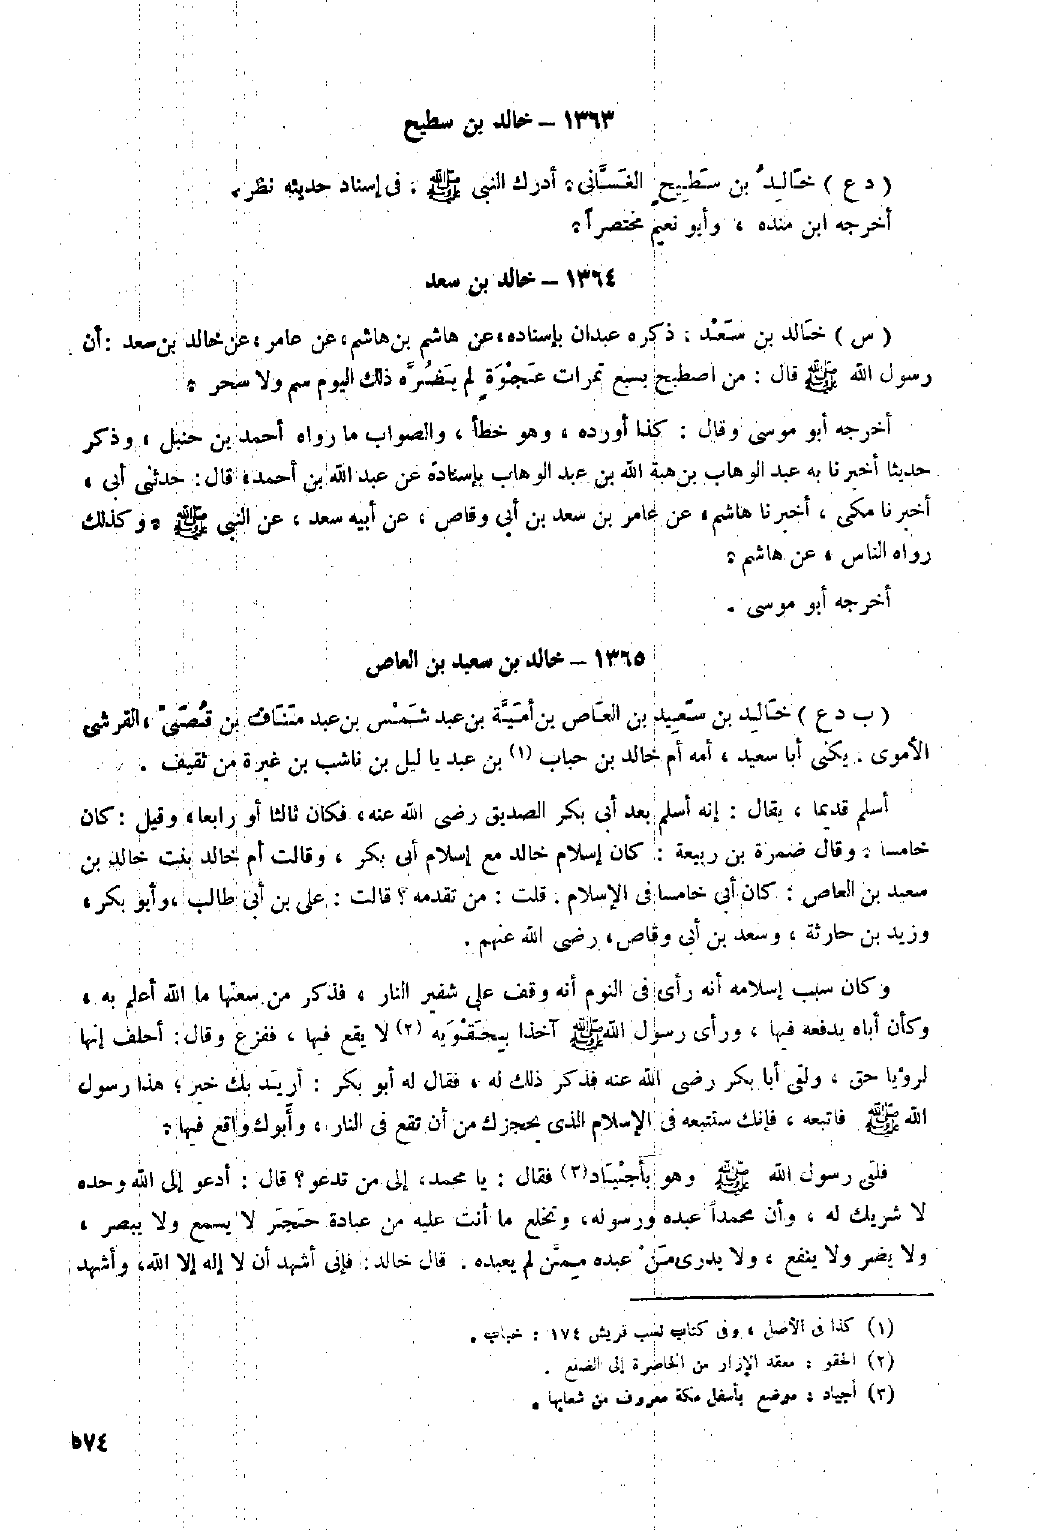 ١٣٦٣ – خالد بن سطيح
( د ع ) خَالِدُ بن سَطِيحٍ الغَسَّانى ، أدرك النبى ﷺ ، فى إسناد حديثه نظر .
أخرجه ابن منده ، وأبو نعيم مختصراً ؛
١٣٦٤ – خالد بن سعد
( س ) خَالد بن سَعْد ، ذكره عبدان بإسناده ، عن هاشم بن هاشم ، عن عامر ، عن خالد بن سعد : أن
رسول الله ﷺ قال : من اصطبح بسبع تمرات عَجْوَةٍ لم يَضُرَّه ذلك اليوم سم ولا سحر ؛
أخرجه أبو موسى وقال : كذا أورده ، وهو خطأ ، والصواب ما رواه أحمد بن حنبل ، وذكر
حديثا أخبرنا به عبد الوهاب بن هبة الله بن عبد الوهاب بإسناده عن عبد الله بن أحمد ، قال : حدثنى أبى ،
أخبرنا مكى ، أخبرنا هاشم ، عن عامر بن سعد بن أبى وقاص ، عن أبيه سعد ، عن النبى ﷺ ؛ وكذلك
رواه الناس ، عن هاشم ؛
أخرجه أبو موسى .
١٣٦٥ – خالد بن سعيد بن العاص
( ب د ع ) خَالِد بن سَعِيد بن العَاص بن أمَيَّة بن عبد شَمْس بن عبد مَنَاف بن قُصَىّ ، القرشى
الأموى . يكنى أبا سعيد ، أمه أم خالد بن حباب (١) بن عبد يا ليل بن ناشب بن غيرة من ثقيف .
أسلم قديما ، يقال : إنه أسلم بعد أبى بكر الصديق رضى الله عنه ، فكان ثالثا أو رابعا ، وقيل : كان
خامسا ؛ وقال ضمرة بن ربيعة : كان إسلام خالد مع إسلام أبى بكر ، وقالت أم خالد بنت خالد بن
سعيد بن العاص : كان أبى خامسا فى الإسلام . قلت : من تقدمه ؟ قالت : على بن أبى طالب ، وأبو بكر ،
وزيد بن حارثة ، وسعد بن أبى وقاص ، رضى الله عنهم .
وكان سبب إسلامه أنه رأى فى النوم أنه وقف على شفير النار ، فذكر من سعتها ما الله أعلم به ،
وكأن أباه يدفعه فيها ، ورأى رسول الله ﷺ آخذا بِحَقْوَيه (٢) لا يقع فيها ، ففزع وقال : أحلف إنها
لرؤيا حق ، ولقى أبا بكر رضى الله عنه فذكر ذلك له ، فقال له أبو بكر : أريد بك خير ؛ هذا رسول
الله ﷺ فاتبعه ، فإنك ستتبعه فى الإسلام الذى يحجزك من أن تقع فى النار ، وأبوك واقع فيها ؛
فلقى رسول الله ﷺ وهو بأَجْيَاد (٣) فقال : يا محمد ، إلى من تدعو ؟ قال : أدعو إلى الله وحده
لا شريك له ، وأن محمداً عبده ورسوله ، وتخلع ما أنت عليه من عبادة حَجَر لا يسمع ولا يبصر ،
ولا يضر ولا ينفع ، ولا يدرى مَنْ عبده مِمَّن لم يعبده . قال خالد : فإنى أشهد أن لا إله إلا الله ، وأشهد
(١) كذا فى الأصل ، وفى كتاب نسب قريش ١٧٤ : خباب .
(٢) الحقو : معقد الإزار من الخاصرة إلى الضلع .
(٣) أجياد : موضع بأسفل مكة معروف من شعابها .
٥٧٤